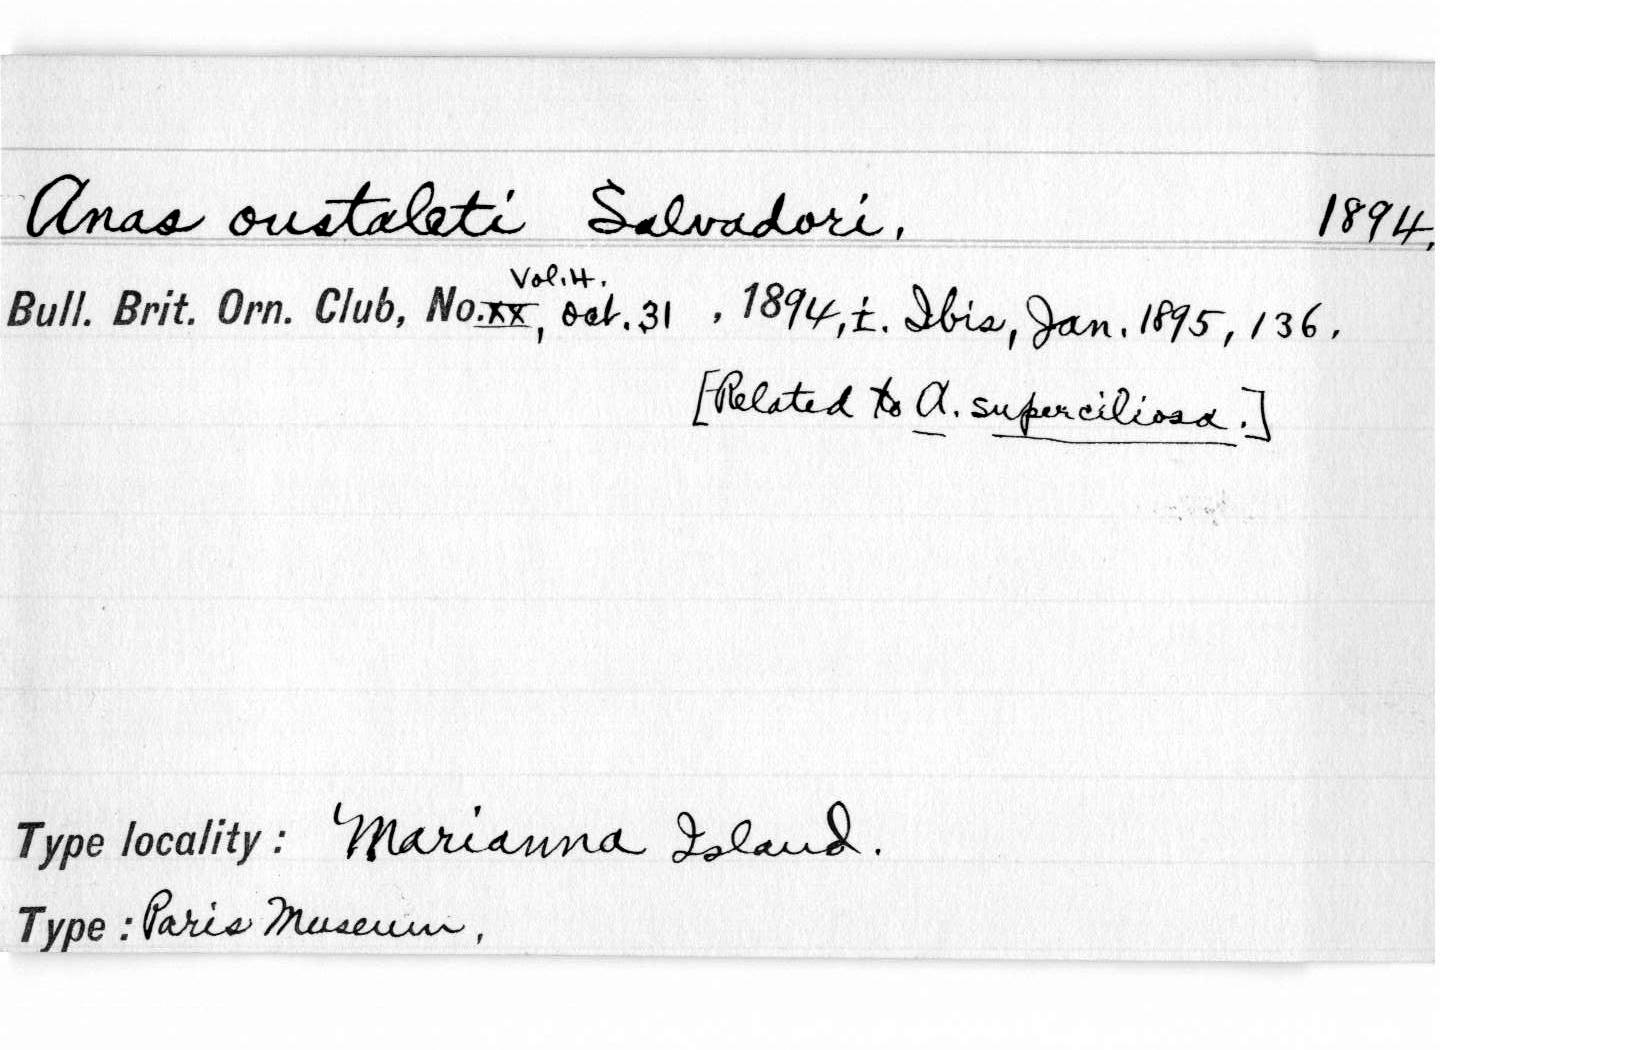 Anas oustaleti Salvadori, 1894,
Vol. 4.
Bull. Brit. Orn. Club, No. XX, Oct. 31, 1894, i. Ibis, Jan. 1895, 136.
[Related to A. superciliosa.]
Type locality: Marianna Island.
Type: Paris Museum,